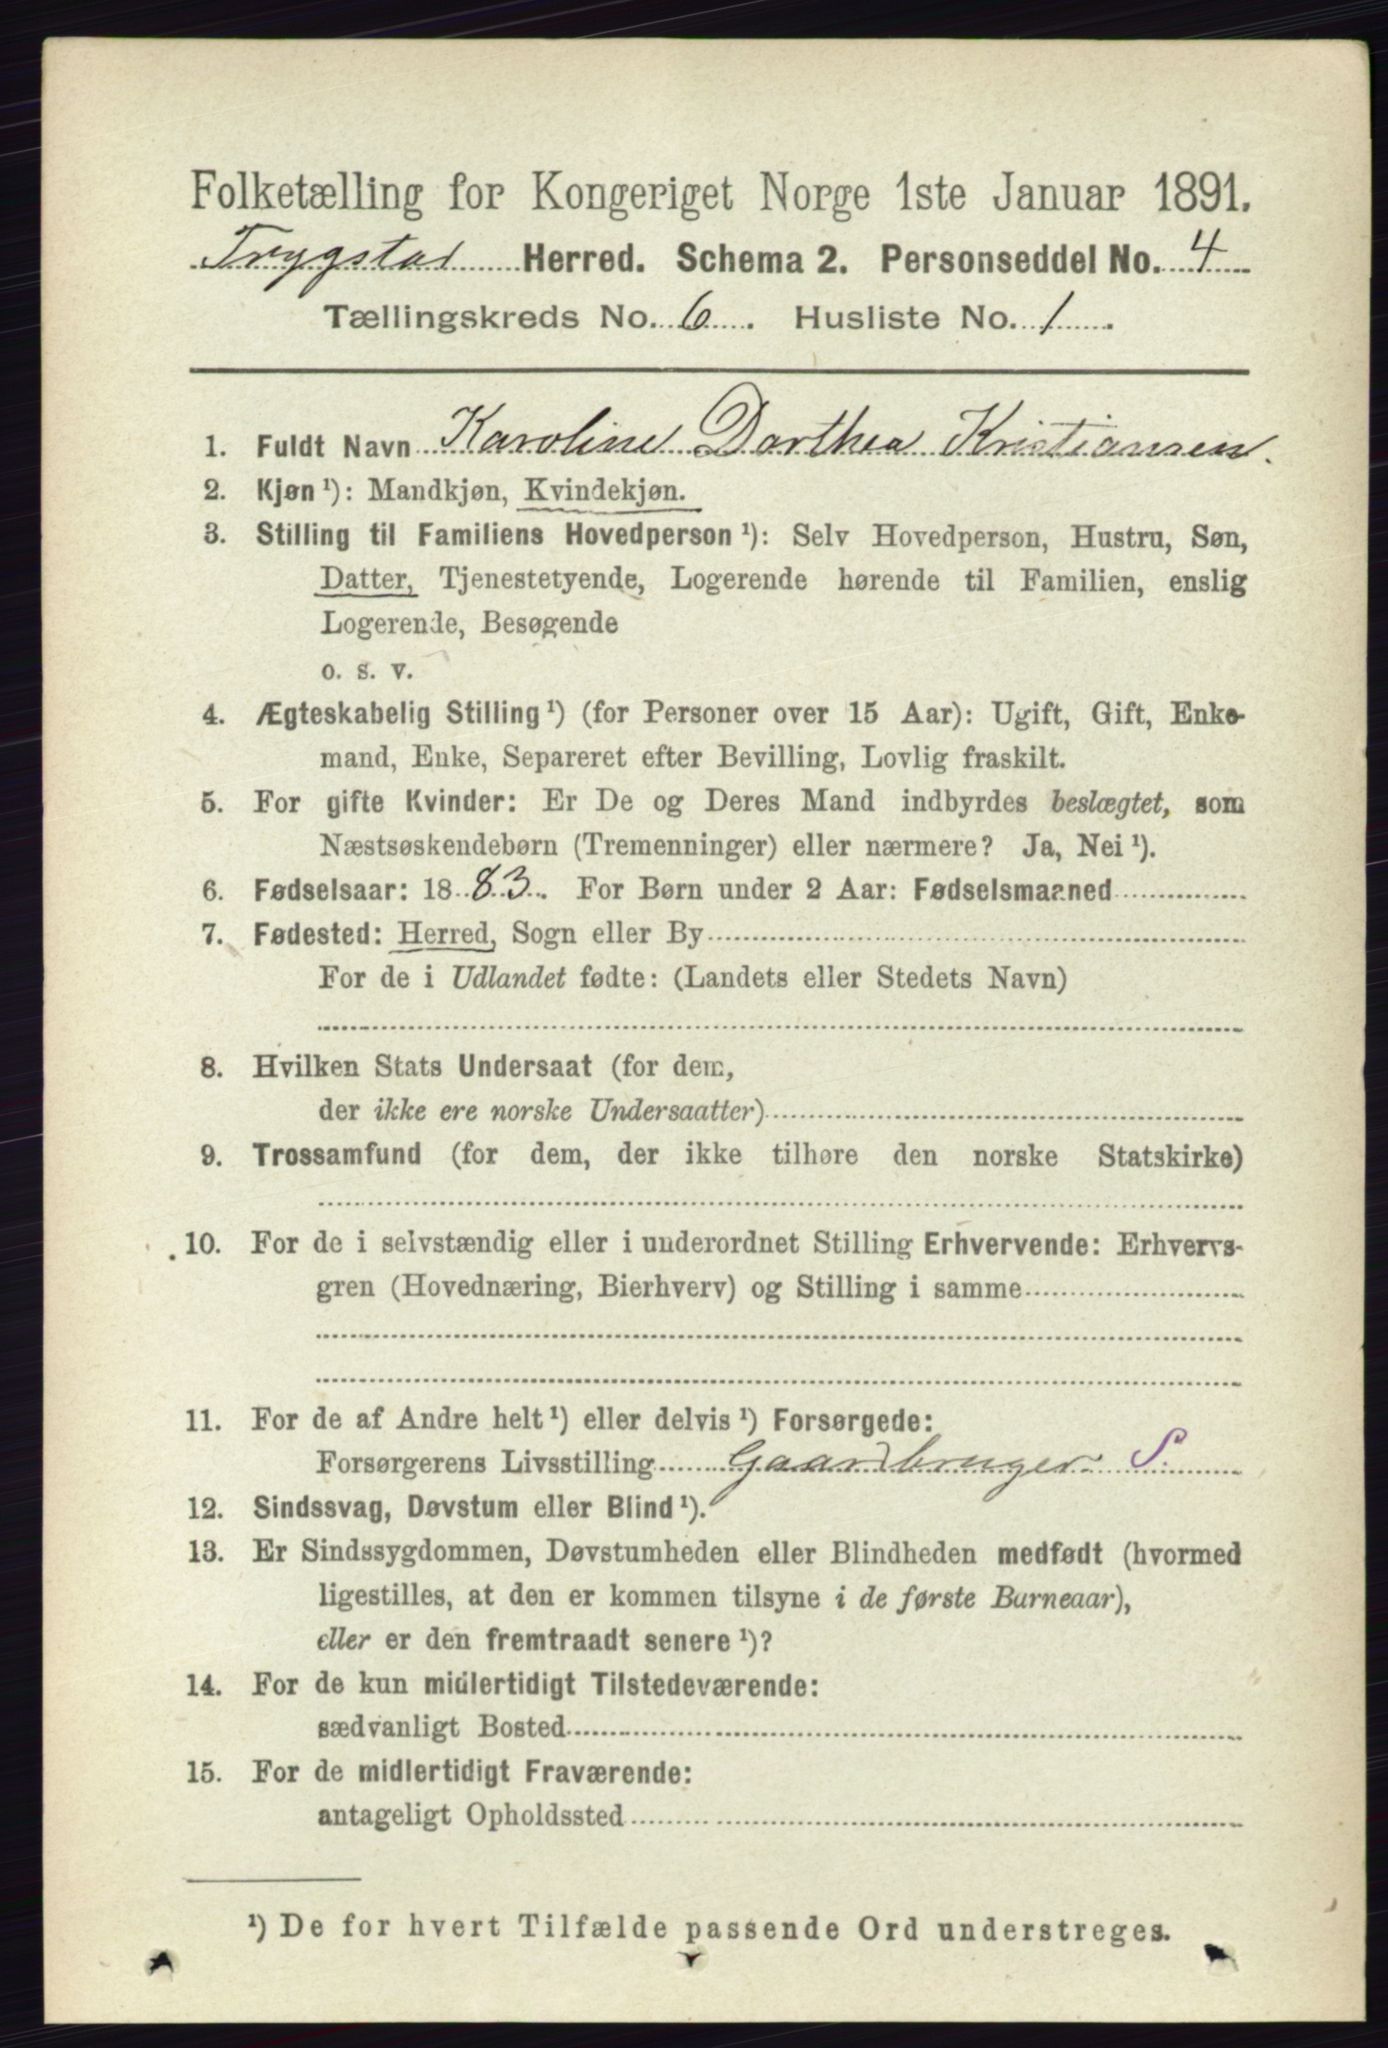 Folketælling for Kongeriget Norge 1ste Januar 1891.
Trygstad Herred. Schema 2. Personseddel No. 4
Tællingskreds No. 6. Husliste No. 1.
1. Fuldt Navn Karoline Dorthea Kristiansen.
2. Kjøn ¹): Mandkjøn, Kvindekjøn.
3. Stilling til Familiens Hovedperson ¹): Selv Hovedperson, Hustru, Søn,
Datter, Tjenestetyende, Logerende hørende til Familien, enslig
Logerende, Besøgende
o. s. v.
4. Ægteskabelig Stilling ¹) (for Personer over 15 Aar): Ugift, Gift, Enke-
mand, Enke, Separeret efter Bevilling, Lovlig fraskilt.
5. For gifte Kvinder: Er De og Deres Mand indbyrdes beslægtet, som
Næstsøskendebørn (Tremenninger) eller nærmere? Ja, Nei ¹).
6. Fødselsaar: 1883. For Børn under 2 Aar: Fødselsmaaned
7. Fødested: Herred, Sogn eller By
For de i Udlandet fødte: (Landets eller Stedets Navn)
8. Hvilken Stats Undersaat (for dem,
der ikke ere norske Undersaatter)
9. Trossamfund (for dem, der ikke tilhøre den norske Statskirke)
10. For de i selvstændig eller i underordnet Stilling Erhvervende: Erhvervs-
gren (Hovednæring, Bierhverv) og Stilling i samme
11. For de af Andre helt ¹) eller delvis ¹) Forsørgede:
Forsørgerens Livsstilling Gaardbruger S.
12. Sindssvag, Døvstum eller Blind ¹).
13. Er Sindssygdommen, Døvstumheden eller Blindheden medfødt (hvormed
ligestilles, at den er kommen tilsyne i de første Barneaar),
eller er den fremtraadt senere ¹)?
14. For de kun midlertidigt Tilstedeværende:
sædvanligt Bosted
15. For de midlertidigt Fraværende:
antageligt Opholdssted
¹) De for hvert Tilfælde passende Ord understreges.